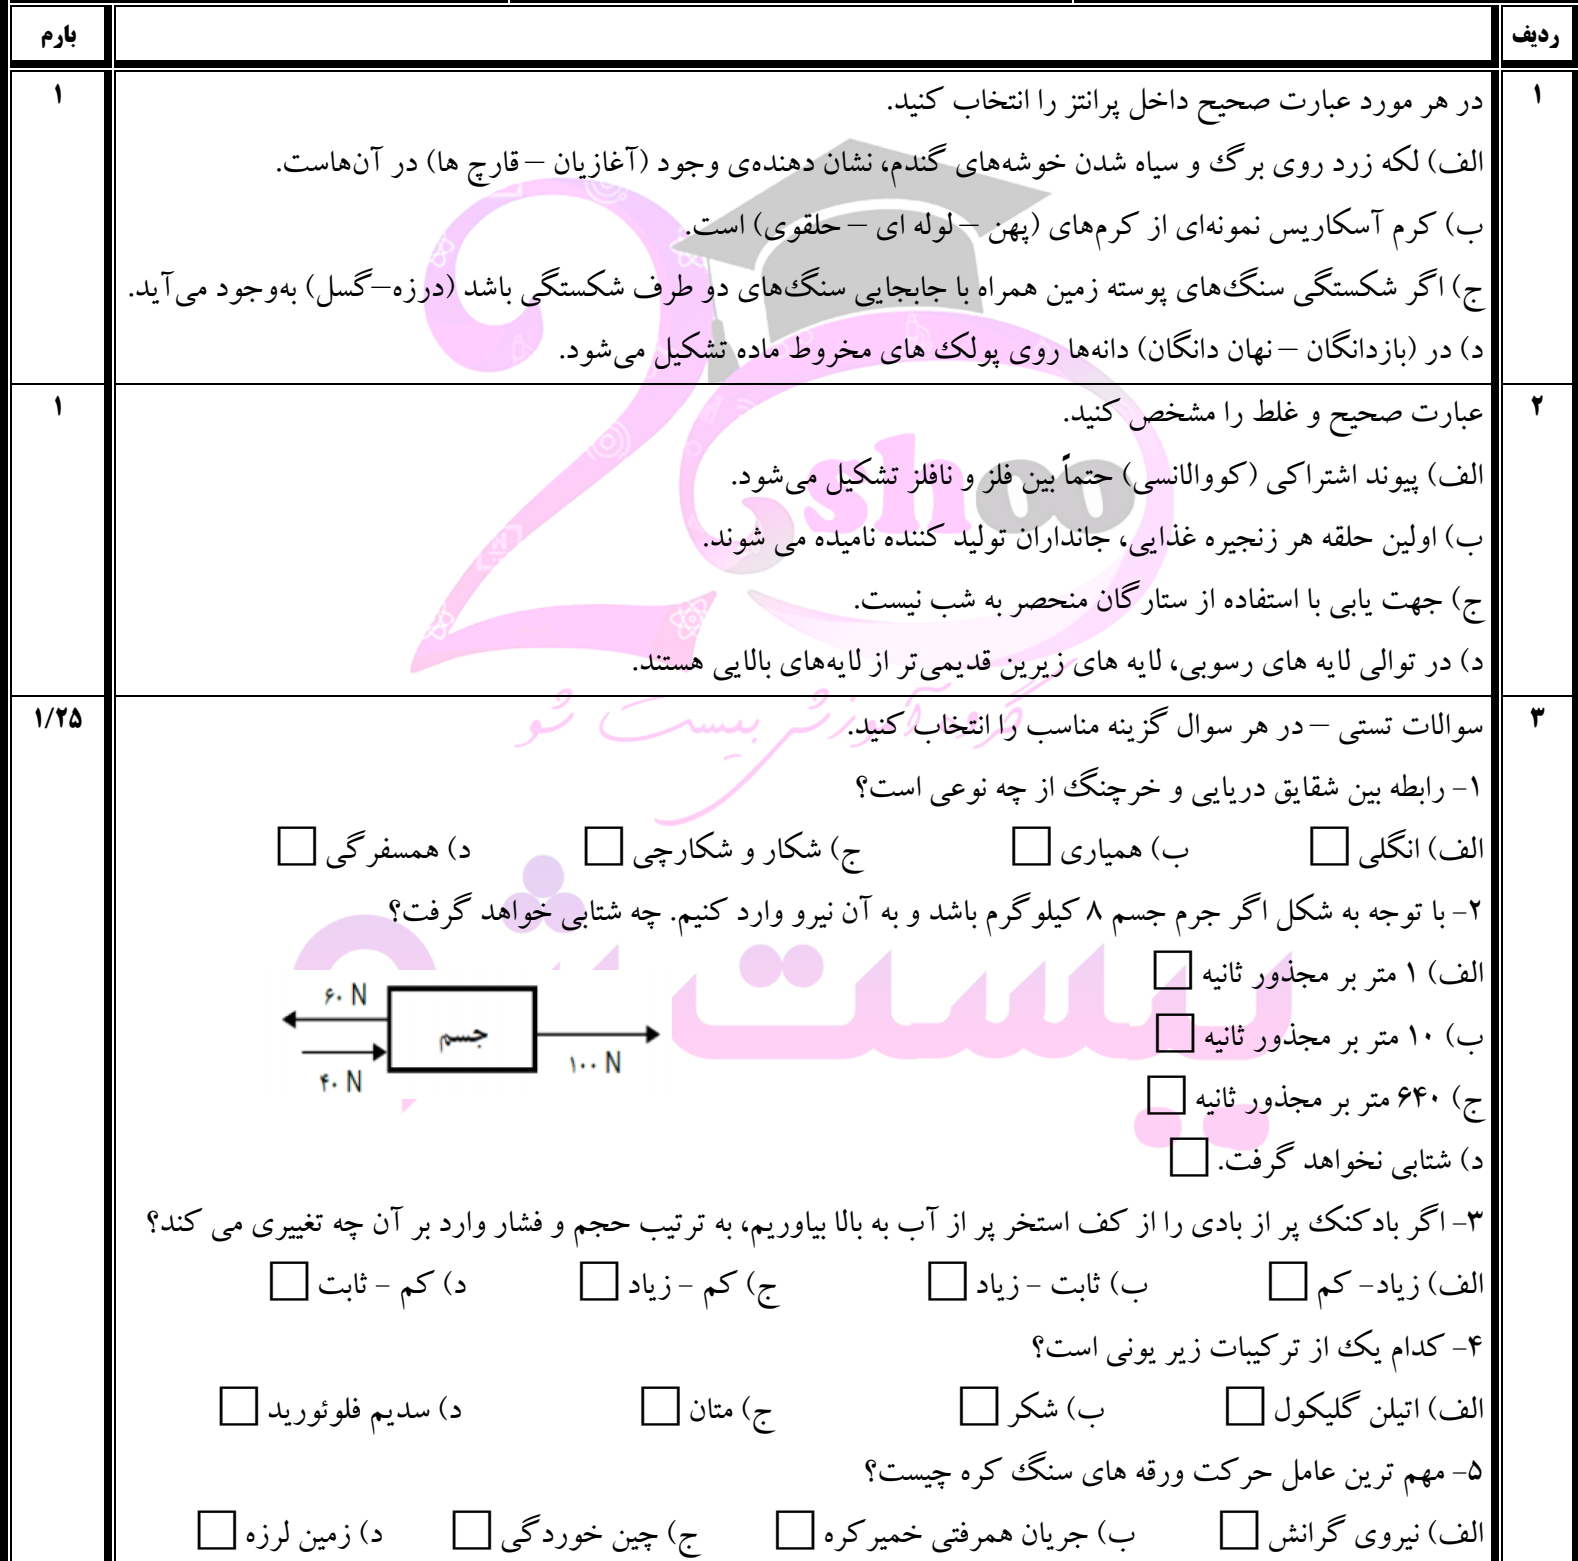 ردیف
بارم
۱
۱
در هر مورد عبارت صحیح داخل پرانتز را انتخاب کنید.
الف) لکه زرد روی برگ و سیاه شدن خوشه‌های گندم، نشان دهنده‌ی وجود (آغازیان – قارچ ها) در آن‌هاست.
ب) کرم آسکاریس نمونه‌ای از کرم‌های (پهن – لوله ای – حلقوی) است.
ج) اگر شکستگی سنگ‌های پوسته زمین همراه با جابجایی سنگ‌های دو طرف شکستگی باشد (درزه–گسل) به‌وجود می‌آید.
د) در (بازدانگان – نهان دانگان) دانه‌ها روی پولک های مخروط ماده تشکیل می‌شود.
۲
۱
عبارت صحیح و غلط را مشخص کنید.
الف) پیوند اشتراکی (کووالانسی) حتماً بین فلز و نافلز تشکیل می‌شود.
ب) اولین حلقه هر زنجیره غذایی، جانداران تولید کننده نامیده می شوند.
ج) جهت یابی با استفاده از ستارگان منحصر به شب نیست.
د) در توالی لایه های رسوبی، لایه های زیرین قدیمی‌تر از لایه‌های بالایی هستند.
۳
۱/۲۵
سوالات تستی – در هر سوال گزینه مناسب را انتخاب کنید.
۱- رابطه بین شقایق دریایی و خرچنگ از چه نوعی است؟
الف) انگلی ب) همیاری ج) شکار و شکارچی د) همسفرگی
۲- با توجه به شکل اگر جرم جسم ۸ کیلوگرم باشد و به آن نیرو وارد کنیم. چه شتابی خواهد گرفت؟
الف) ۱ متر بر مجذور ثانیه
ب) ۱۰ متر بر مجذور ثانیه
ج) ۶۴۰ متر بر مجذور ثانیه
د) شتابی نخواهد گرفت.
۶۰ N
جسم
۱۰۰ N
۴۰ N
۳- اگر بادکنک پر از بادی را از کف استخر پر از آب به بالا بیاوریم، به ترتیب حجم و فشار وارد بر آن چه تغییری می کند؟
الف) زیاد- کم ب) ثابت - زیاد ج) کم - زیاد د) کم - ثابت
۴- کدام یک از ترکیبات زیر یونی است؟
الف) اتیلن گلیکول ب) شکر ج) متان د) سدیم فلوئورید
۵- مهم ترین عامل حرکت ورقه های سنگ کره چیست؟
الف) نیروی گرانش ب) جریان همرفتی خمیرکره ج) چین خوردگی د) زمین لرزه
2shoo
گروه آموزشی بیست شو
بیست شو